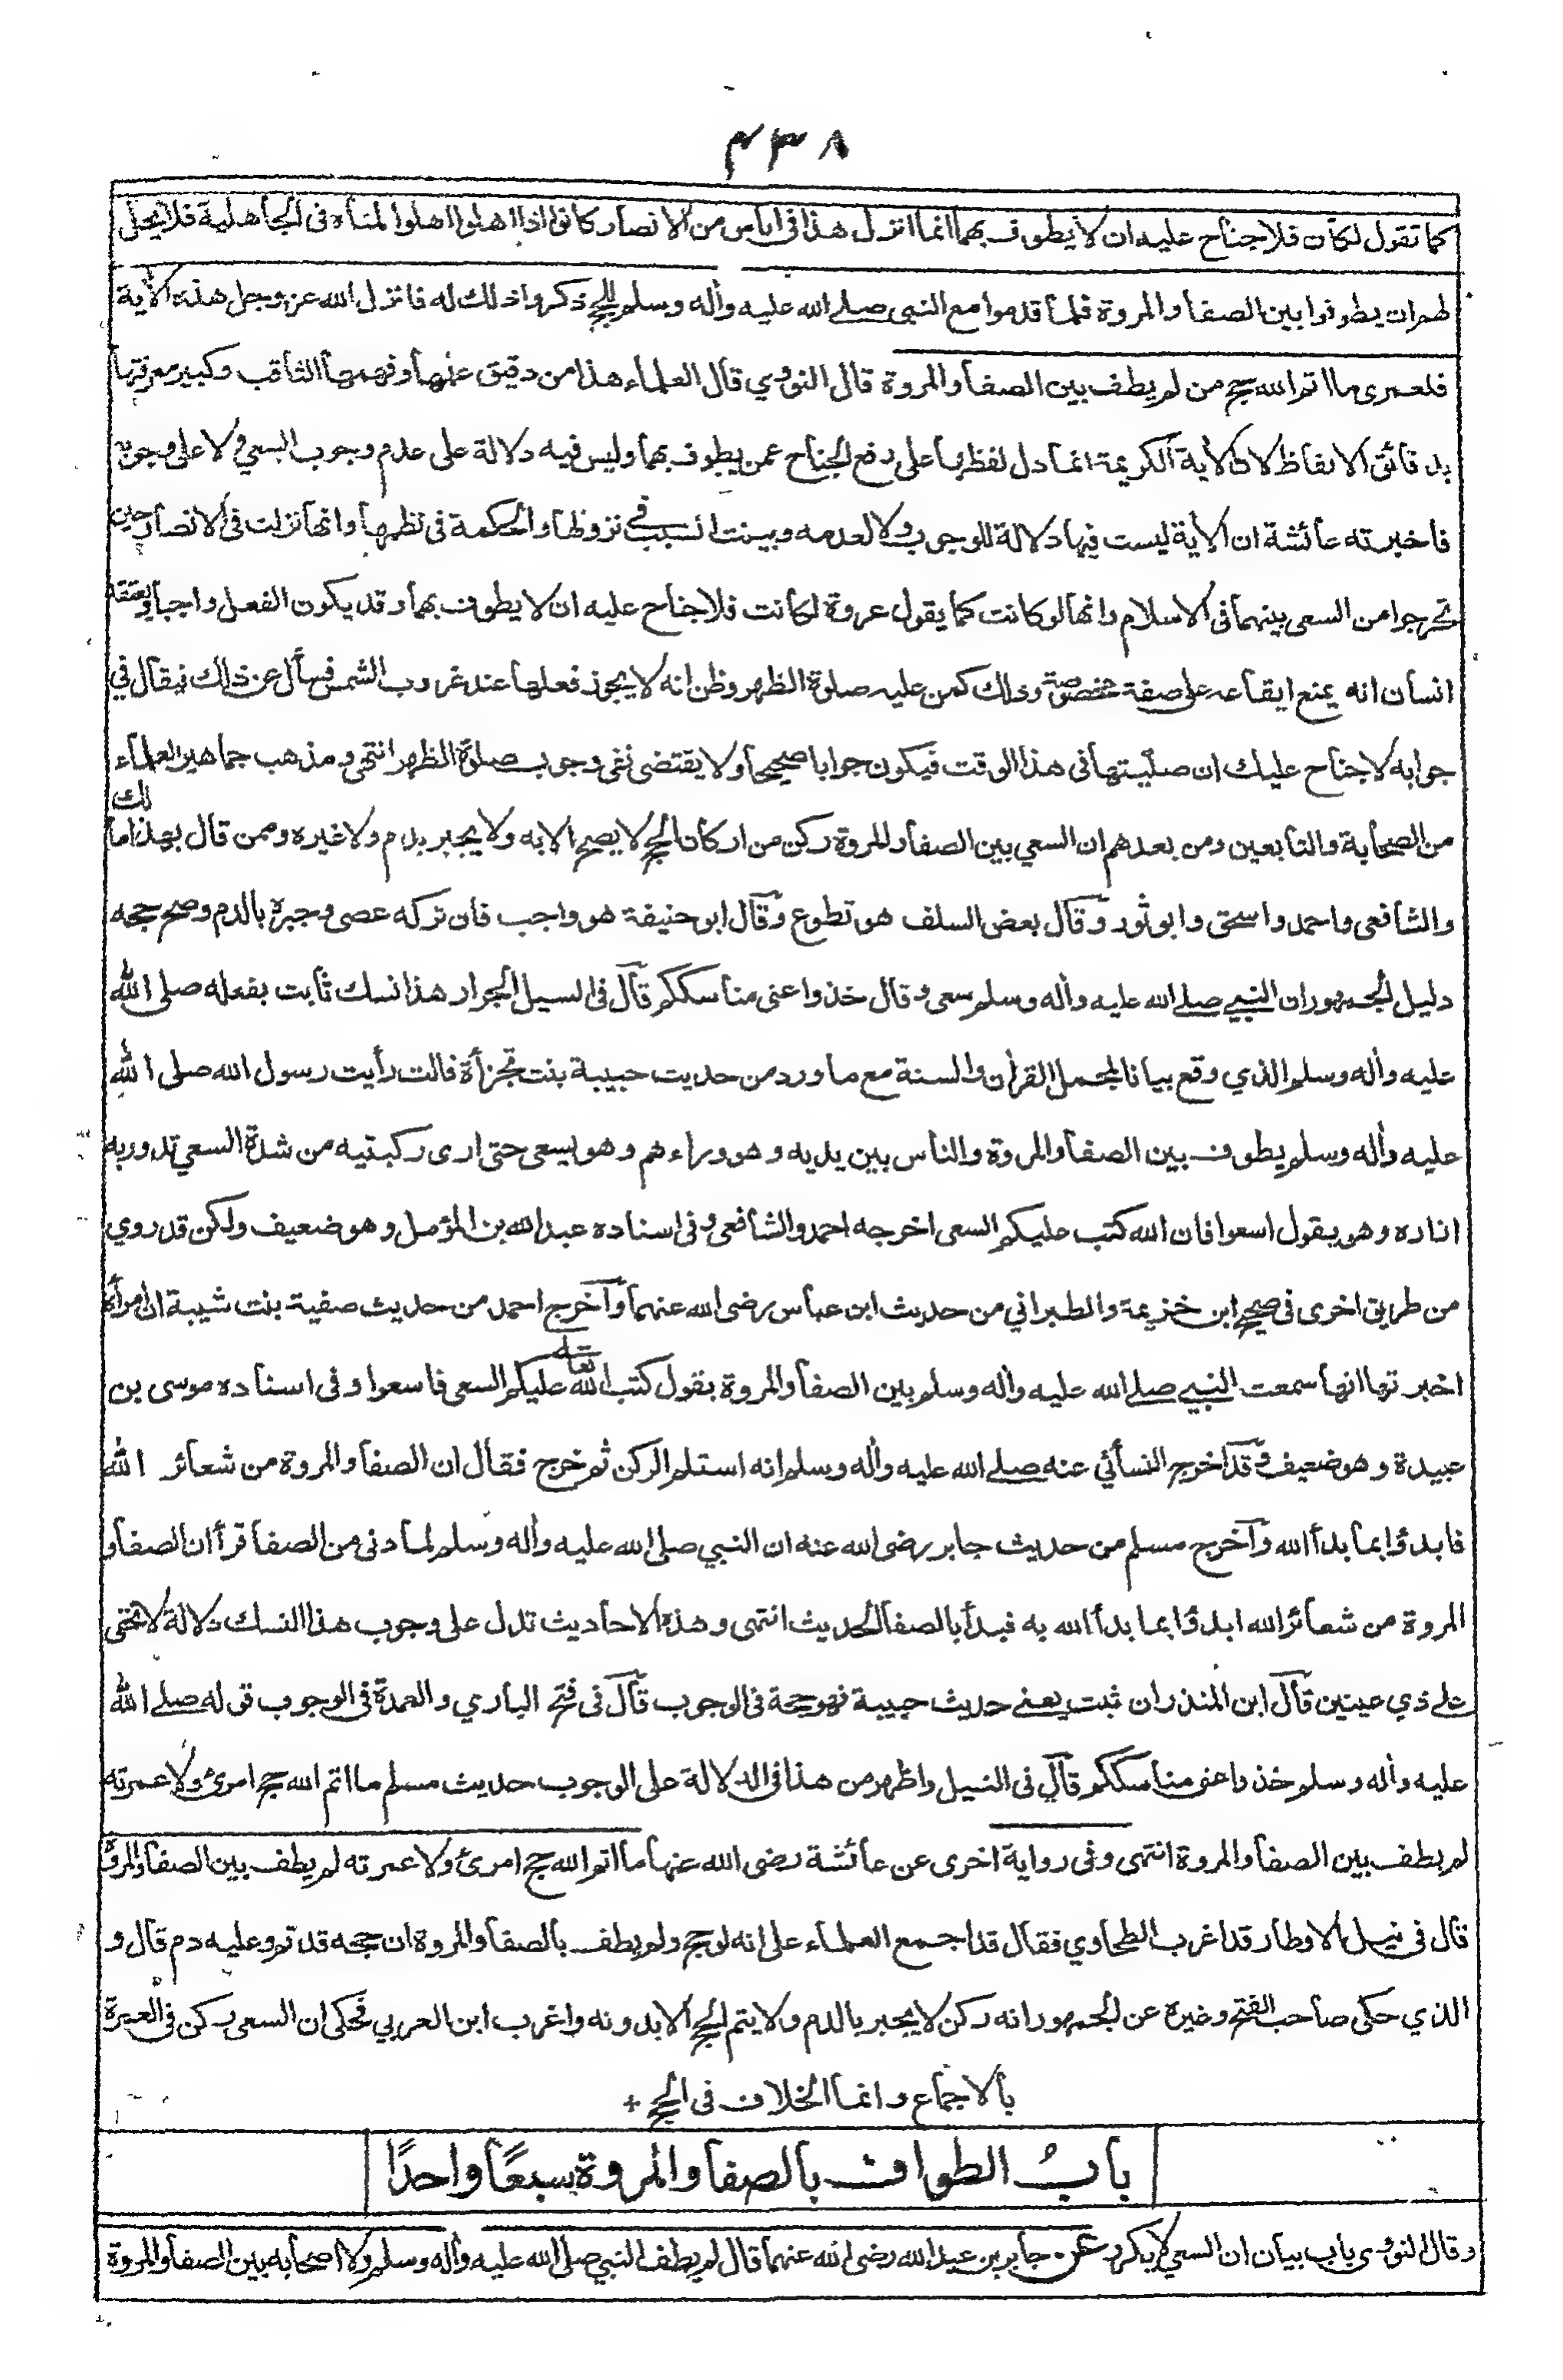 ٤٣٨
كما تقول لكان فلا جناح عليه ان لا يطوف بهما انما انزل هذا فى اناس من الانصار كانوا اذا اهلوا اهلوا لمناة فى الجاهلية فلا يحل
لهم ان يطوفوا بين الصفا والمروة فلما قدموا مع النبي صلى الله عليه وأله وسلم للحج ذكروا ذلك له فانزل الله عز وجل هذه الأية
فلعمرى ما اتم الله حج من لم يطف بين الصفا والمروة قال النووي قال العلماء هذا من دقيق علمها وفهمها الثاقب وكبير معرفتها
بدقائق الالفاظ لان الأية الكريمة انما دل لفظها على رفع الجناح عمن يطوف بهما وليس فيه دلالة على عدم وجوب السعي ولا على وجوبه
فاخبرته عائشة ان الأية ليست فيها دلالة للوجوب ولا لعدمه وبينت السبب في نزولها والحكمة فى نظمها وانها نزلت فى الانصار حين
تحرجوا من السعى بينهما فى الاسلام وانها لو كانت كما يقول عروة لكانت فلا جناح عليه ان لا يطوف بهما وقد يكون الفعل واجبا ويعتقد
انسان انه يمنع ايقاعه على صفة مخصوصة وذلك كمن عليه صلوة الظهر وظن انه لا يجوز فعلها عند غروب الشمس فسأل عن ذلك فيقال في
جوابه لا جناح عليك ان صليتها فى هذا الوقت فيكون جوابا صحيحا ولا يقتضى نفي وجوب صلوة الظهر انتهى ومذهب جماهير العلماء
من الصحابة والتابعين ومن بعدهم ان السعي بين الصفا والمروة ركن من اركان الحج لا يصح الا به ولا يجبر بدم ولا غيره وممن قال بهذا مالك
والشافعى واحمد واسحق وابو ثور وقال بعض السلف هو تطوع وقال ابو حنيفة هو واجب فان تركه عصى وجبره بالدم وصح حجه
دليل الجمهور ان النبي صلى الله عليه وأله وسلم سعى وقال خذوا عنى مناسككم قال فى السيل الجرار هذا نسك ثابت بفعله صلى الله
عليه وأله وسلم الذي وقع بيانا لمجمل القرأن والسنة مع ما ورد من حديث حبيبة بنت تجزأة قالت رأيت رسول الله صلى الله
عليه وأله وسلم يطوف بين الصفا والمروة والناس بين يديه وهو وراءهم وهو يسعى حتى ارى ركبتيه من شدة السعي تدور به
ازاره وهو يقول اسعوا فان الله كتب عليكم السعى اخرجه احمد والشافعى وفى اسناده عبد الله بن المؤمل وهو ضعيف ولكن قد روي
من طريق اخرى فى صحيح ابن خزيمة والطبراني من حديث ابن عباس رضى الله عنهما وأخرج احمد من حديث صفية بنت شيبة ان امرأة
اخبرتها انها سمعت النبي صلى الله عليه وأله وسلم بين الصفا والمروة يقول كتب الله تعالى عليكم السعى فاسعوا وفى اسناده موسى بن
عبيدة وهو ضعيف وقد اخرج النسائي عنه صلى الله عليه وأله وسلم انه استلم الركن ثم خرج فقال ان الصفا والمروة من شعائر الله
فابدؤا بما بدأ الله وأخرج مسلم من حديث جابر رضى الله عنه ان النبي صلى الله عليه وأله وسلم لما دنى من الصفا قرأ ان الصفا و
المروة من شعائر الله ابدؤا بما بدأ الله به فبدأ بالصفا الحديث انتهى وهذه الاحاديث تدل على وجوب هذا النسك دلالة لا تخفى
على ذي عينين قال ابن المنذر ان ثبت يعنى حديث حبيبة فهو حجة فى الوجوب قال فى فتح الباري والعمدة فى الوجوب قوله صلى الله
عليه وأله وسلم خذوا عنى مناسككم قال فى النيل واظهر من هذا فى الدلالة على الوجوب حديث مسلم ما اتم الله حج امرئ ولا عمرته
لم يطف بين الصفا والمروة انتهى وفى رواية اخرى عن عائشة رضى الله عنها ما اتم الله حج امرئ ولا عمرته لم يطف بين الصفا والمروة
قال فى نيل الاوطار قد اغرب الطحاوي فقال قد اجمع العلماء على انه لو حج ولم يطف بالصفا والمروة ان حجه قد تم وعليه دم قال و
الذي حكى صاحب الفتح وغيره عن الجمهور انه ركن لا يجبر بالدم ولا يتم الحج الا بدونه واغرب ابن العربي فحكى ان السعى ركن فى العمرة
بالاجماع وانما الخلاف فى الحج +
بابُ الطواف بالصفا والمروة سبعًا واحدًا
وقال النووى باب بيان ان السعي لا يكرر عن جابر بن عبد الله رضى الله عنهما قال لم يطف النبي صلى الله عليه وأله وسلم ولا اصحابه بين الصفا والمروة